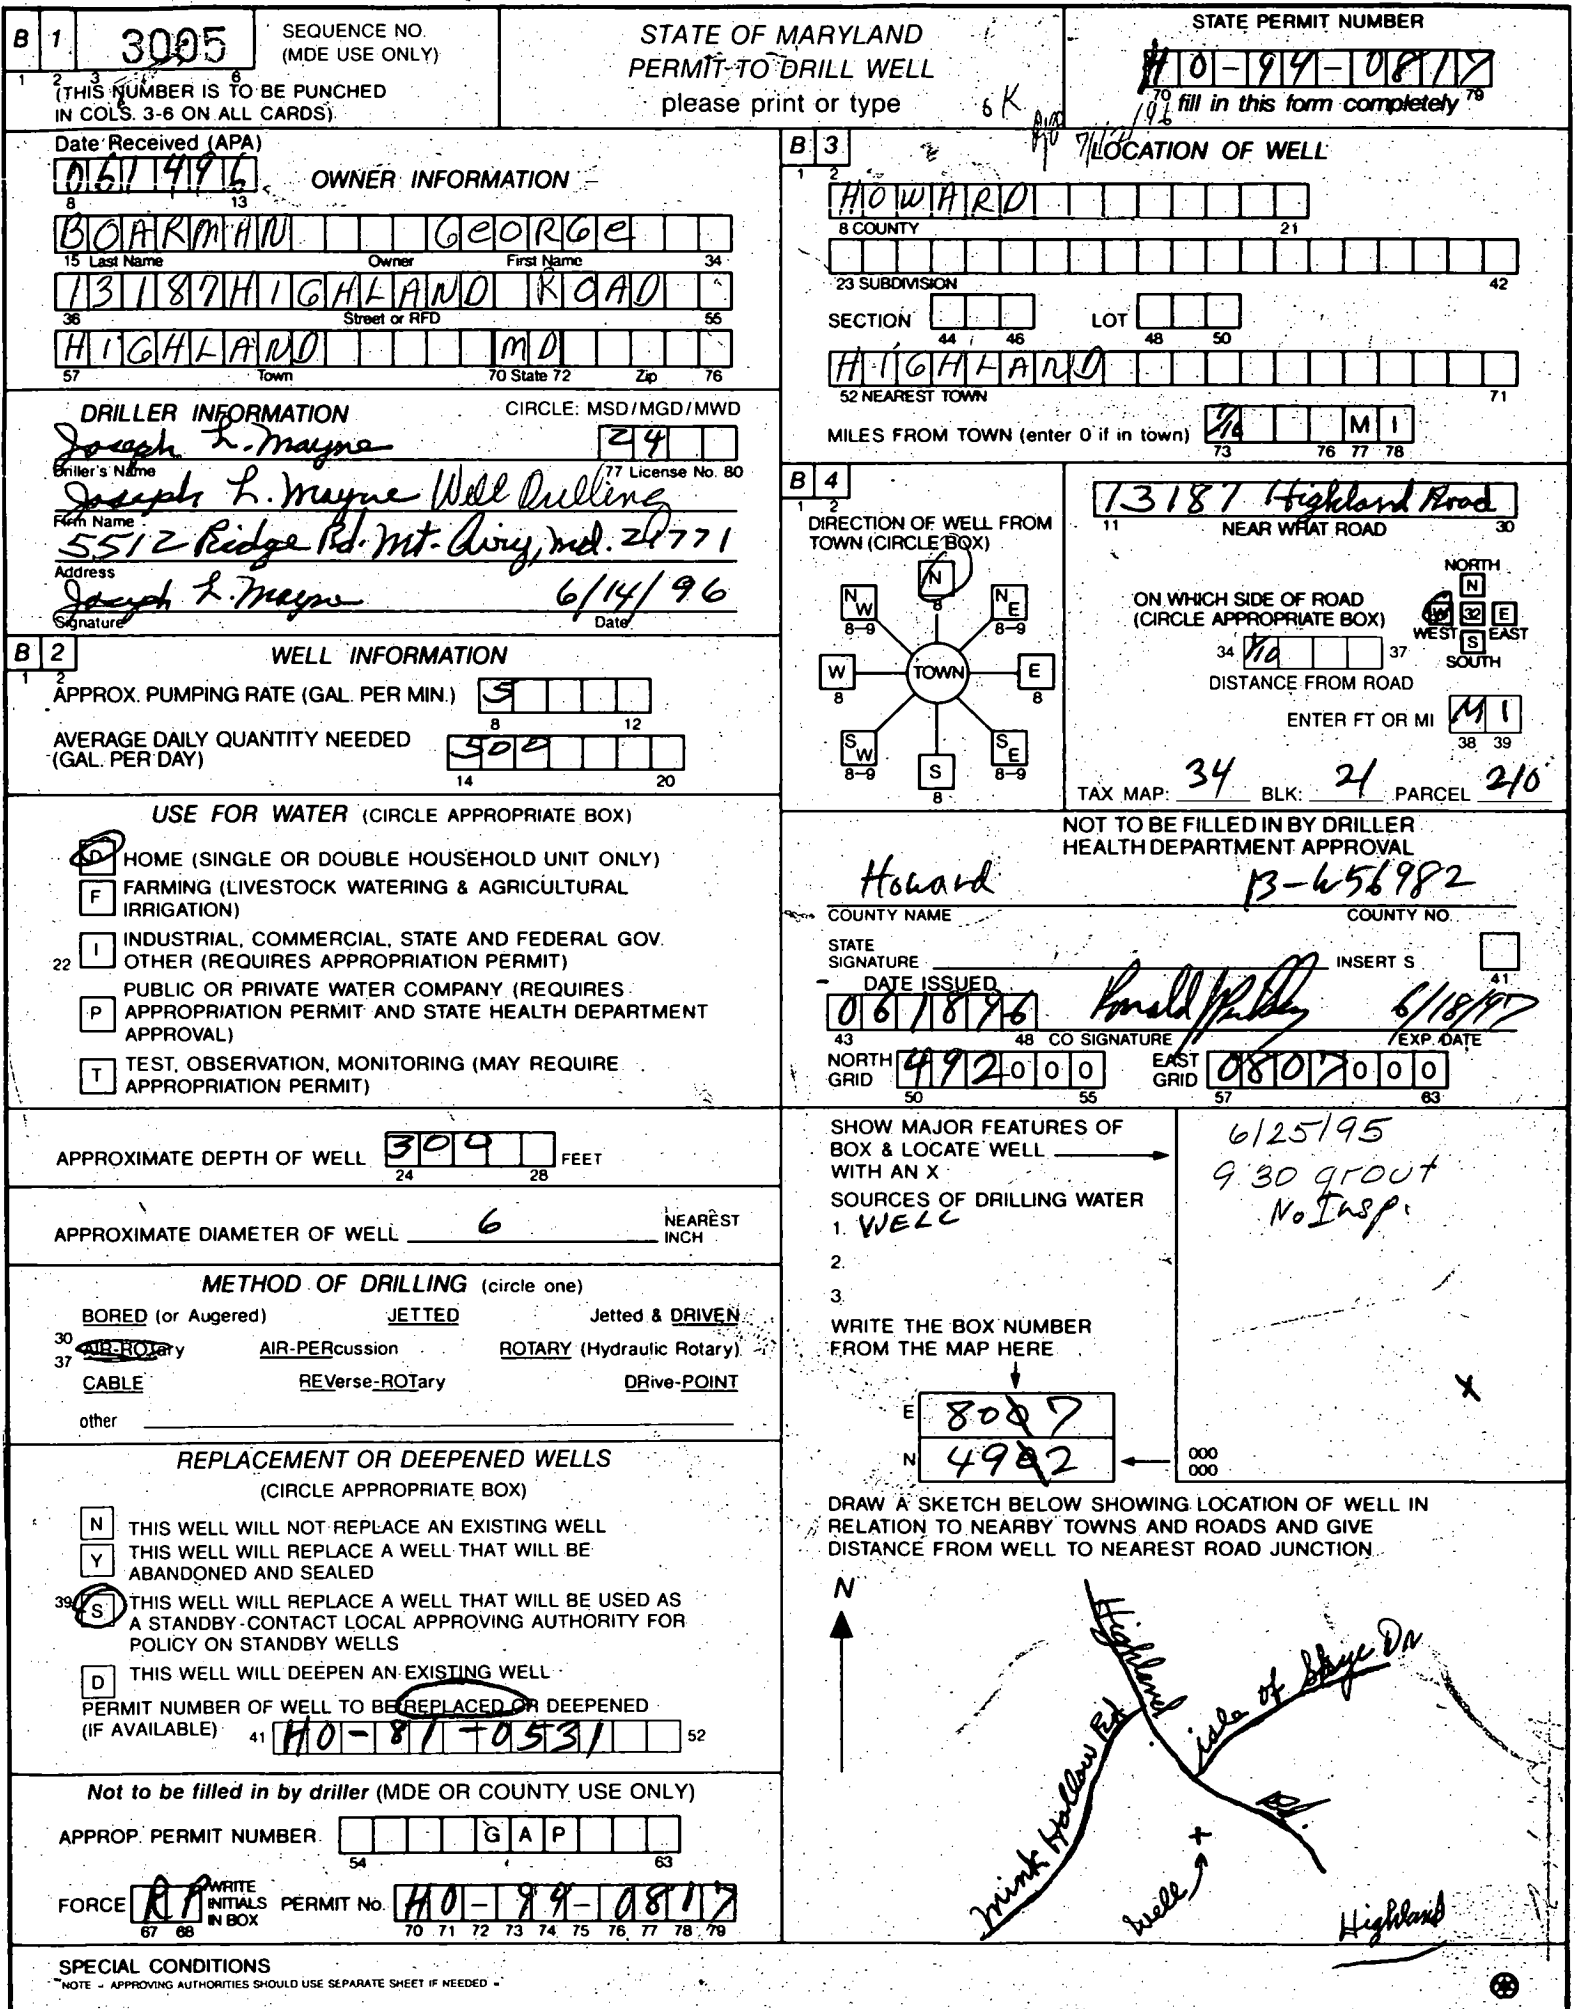 B 1 3005 SEQUENCE NO. (MDE USE ONLY)
1 2 3 6
(THIS NUMBER IS TO BE PUNCHED
IN COLS. 3-6 ON ALL CARDS)
STATE OF MARYLAND
PERMIT TO DRILL WELL
please print or type
STATE PERMIT NUMBER
HO-94-0817
70 fill in this form completely 79
Date Received (APA)
061496 OWNER INFORMATION
8 13
BOARMAN GEORGE
15 Last Name Owner First Name 34
13187 HIGHLAND ROAD
36 Street or RFD 55
HIGHLAND MD
57 Town 70 State 72 Zip 76
DRILLER INFORMATION CIRCLE: MSD/MGD/MWD
Joseph L. Mayne 24
Driller's Name 77 License No. 80
Joseph L. Mayne Well Drilling
Firm Name
5512 Ridge Rd. Mt. Airy, Md. 21771
Address
Joseph L. Mayne 6/14/96
Signature Date
B 2 WELL INFORMATION
1 2
APPROX. PUMPING RATE (GAL. PER MIN.) 5
8 12
AVERAGE DAILY QUANTITY NEEDED
(GAL. PER DAY) 500
14 20
USE FOR WATER (CIRCLE APPROPRIATE BOX)
D HOME (SINGLE OR DOUBLE HOUSEHOLD UNIT ONLY)
F FARMING (LIVESTOCK WATERING & AGRICULTURAL
IRRIGATION)
22 I INDUSTRIAL, COMMERCIAL, STATE AND FEDERAL GOV.
OTHER (REQUIRES APPROPRIATION PERMIT)
P PUBLIC OR PRIVATE WATER COMPANY (REQUIRES
APPROPRIATION PERMIT AND STATE HEALTH DEPARTMENT
APPROVAL)
T TEST, OBSERVATION, MONITORING (MAY REQUIRE
APPROPRIATION PERMIT)
APPROXIMATE DEPTH OF WELL 300 FEET
24 28
APPROXIMATE DIAMETER OF WELL 6 NEAREST INCH
METHOD OF DRILLING (circle one)
BORED (or Augered) JETTED Jetted & DRIVEN
30
37 AIR-ROTary AIR-PERcussion ROTARY (Hydraulic Rotary)
CABLE REVerse-ROTary DRive-POINT
other
REPLACEMENT OR DEEPENED WELLS
(CIRCLE APPROPRIATE BOX)
N THIS WELL WILL NOT REPLACE AN EXISTING WELL
Y THIS WELL WILL REPLACE A WELL THAT WILL BE
ABANDONED AND SEALED
39 S THIS WELL WILL REPLACE A WELL THAT WILL BE USED AS
A STANDBY-CONTACT LOCAL APPROVING AUTHORITY FOR
POLICY ON STANDBY WELLS
D THIS WELL WILL DEEPEN AN EXISTING WELL
PERMIT NUMBER OF WELL TO BE REPLACED OR DEEPENED
(IF AVAILABLE) 41 HO-81-0531 52
Not to be filled in by driller (MDE OR COUNTY USE ONLY)
APPROP. PERMIT NUMBER GAP
54 63
FORCE RP WRITE INITIALS IN BOX PERMIT No. HO-94-0817
67 68 70 71 72 73 74 75 76 77 78 79
SPECIAL CONDITIONS
NOTE - APPROVING AUTHORITIES SHOULD USE SEPARATE SHEET IF NEEDED
B 3 LOCATION OF WELL
1 2
HOWARD
8 COUNTY 21
23 SUBDIVISION 42
SECTION LOT
44 46 48 50
HIGHLAND
52 NEAREST TOWN 71
MILES FROM TOWN (enter 0 if in town) 7/10 MI
73 76 77 78
B 4
1 2
DIRECTION OF WELL FROM
TOWN (CIRCLE BOX)
N 8
NW 8-9 NE 8-9
W 8 TOWN E 8
SW 8-9 SE 8-9
S 8
13187 Highland Road
11 NEAR WHAT ROAD 30
ON WHICH SIDE OF ROAD
(CIRCLE APPROPRIATE BOX)
NORTH
N
W 32 E
WEST EAST
S
SOUTH
34 1/10 37
DISTANCE FROM ROAD
ENTER FT OR MI MI
38 39
TAX MAP: 34 BLK: 21 PARCEL 210
NOT TO BE FILLED IN BY DRILLER
HEALTH DEPARTMENT APPROVAL
Howard B-W56982
COUNTY NAME COUNTY NO.
STATE
SIGNATURE INSERT S
41
DATE ISSUED
061896 6/18/97
43 48 CO SIGNATURE EXP. DATE
NORTH GRID 492000 EAST GRID 0807000
50 55 57 63
SHOW MAJOR FEATURES OF
BOX & LOCATE WELL
WITH AN X
SOURCES OF DRILLING WATER
1. WELL
2.
3.
WRITE THE BOX NUMBER
FROM THE MAP HERE
E 8007
N 4902
6/25/95
9 30 grout
No Insp.
X
000
000
DRAW A SKETCH BELOW SHOWING LOCATION OF WELL IN
RELATION TO NEARBY TOWNS AND ROADS AND GIVE
DISTANCE FROM WELL TO NEAREST ROAD JUNCTION
N
Highland
Rd.
isle of Skye Dr
Mink Hollow Rd
Well
Highland